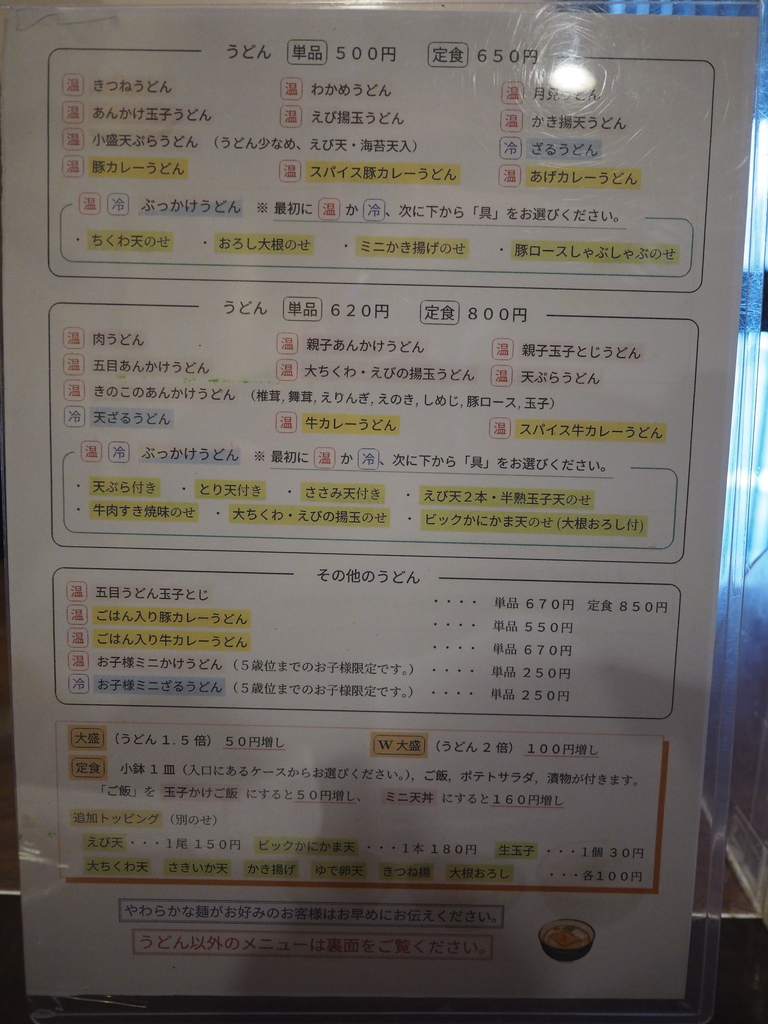 うどん 単品 500円 定食 650円
温 きつねうどん 温 わかめうどん 温 月見うどん
温 あんかけ玉子うどん 温 えび揚玉うどん 温 かき揚天うどん
温 小盛天ぷらうどん (うどん少なめ、えび天・海苔天入) 冷 ざるうどん
温 豚カレーうどん 温 スパイス豚カレーうどん 温 あげカレーうどん
温 冷 ぶっかけうどん ※ 最初に 温 か 冷、次に下から「具」をお選びください。
・ちくわ天のせ ・おろし大根のせ ・ミニかき揚げのせ ・豚ロースしゃぶしゃぶのせ
うどん 単品 620円 定食 800円
温 肉うどん 温 親子あんかけうどん 温 親子玉子とじうどん
温 五目あんかけうどん 温 大ちくわ・えびの揚玉うどん 温 天ぷらうどん
温 きのこのあんかけうどん (椎茸, 舞茸, えりんぎ, えのき, しめじ, 豚ロース, 玉子)
冷 天ざるうどん 温 牛カレーうどん 温 スパイス牛カレーうどん
温 冷 ぶっかけうどん ※ 最初に 温 か 冷、次に下から「具」をお選びください。
・天ぷら付き ・とり天付き ・ささみ天付き ・えび天2本・半熟玉子天のせ
・牛肉すき焼味のせ ・大ちくわ・えびの揚玉のせ ・ビックかにかま天のせ(大根おろし付)
その他のうどん
温 五目うどん玉子とじ ・・・・ 単品 670円 定食 850円
温 ごはん入り豚カレーうどん ・・・・ 単品 550円
温 ごはん入り牛カレーうどん ・・・・ 単品 670円
温 お子様ミニかけうどん (5歳位までのお子様限定です。) ・・・・ 単品 250円
冷 お子様ミニざるうどん (5歳位までのお子様限定です。) ・・・・ 単品 250円
大盛 (うどん1.5倍) 50円増し W大盛 (うどん2倍) 100円増し
定食 小鉢1皿(入口にあるケースからお選びください。), ご飯, ポテトサラダ, 漬物が付きます。
「ご飯」を 玉子かけご飯 にすると50円増し、 ミニ天丼 にすると160円増し
追加トッピング (別のせ)
えび天・・・1尾 150円 ビックかにかま天・・・1本 180円 生玉子・・・1個 30円
大ちくわ天 さきいか天 かき揚げ ゆで卵天 きつね揚 大根おろし ・・・各100円
やわらかな麺がお好みのお客様はお早めにお伝えください。
うどん以外のメニューは裏面をご覧ください。